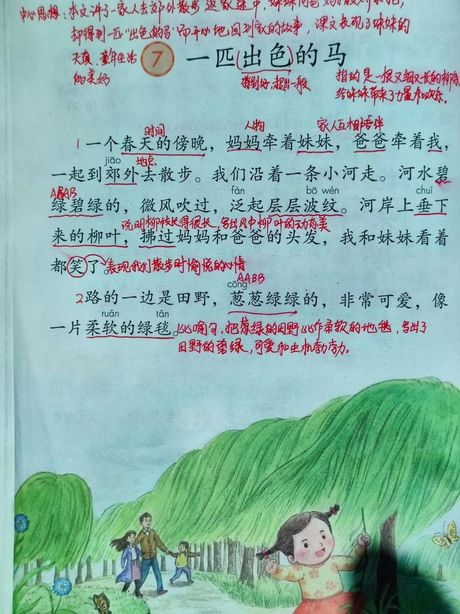 中心思想：本文讲了一家人去郊外散步，返家途中，妹妹
却得到一匹"出色的马"而开心地回到家的故事，课文表现了妹妹的
天真，童年生活
的美好
7 一匹出色的马
特别好，超出一般
指的是一根又细又长的柳条
给妹妹带来了力量和快乐。
时间 人物 家人互相陪伴
1 一个春天的傍晚，妈妈牵着妹妹，爸爸牵着我，
jiāo 地点
一起到郊外去散步。我们沿着一条小河走。河水碧
AABB fàn bō wén chuí
绿碧绿的，微风吹过，泛起层层波纹。河岸上垂下
说明柳枝长得很长，写出风中柳叶的动态美
来的柳叶，拂过妈妈和爸爸的头发，我和妹妹看着
都笑了 表现我们散步时愉悦的心情
AABB
cōng
2 路的一边是田野，葱葱绿绿的，非常可爱，像
ruǎn tǎn
一片柔软的绿毯。比喻句，把葱绿的田野比作柔软的地毯，写出了
田野的碧绿，可爱和生机勃勃。